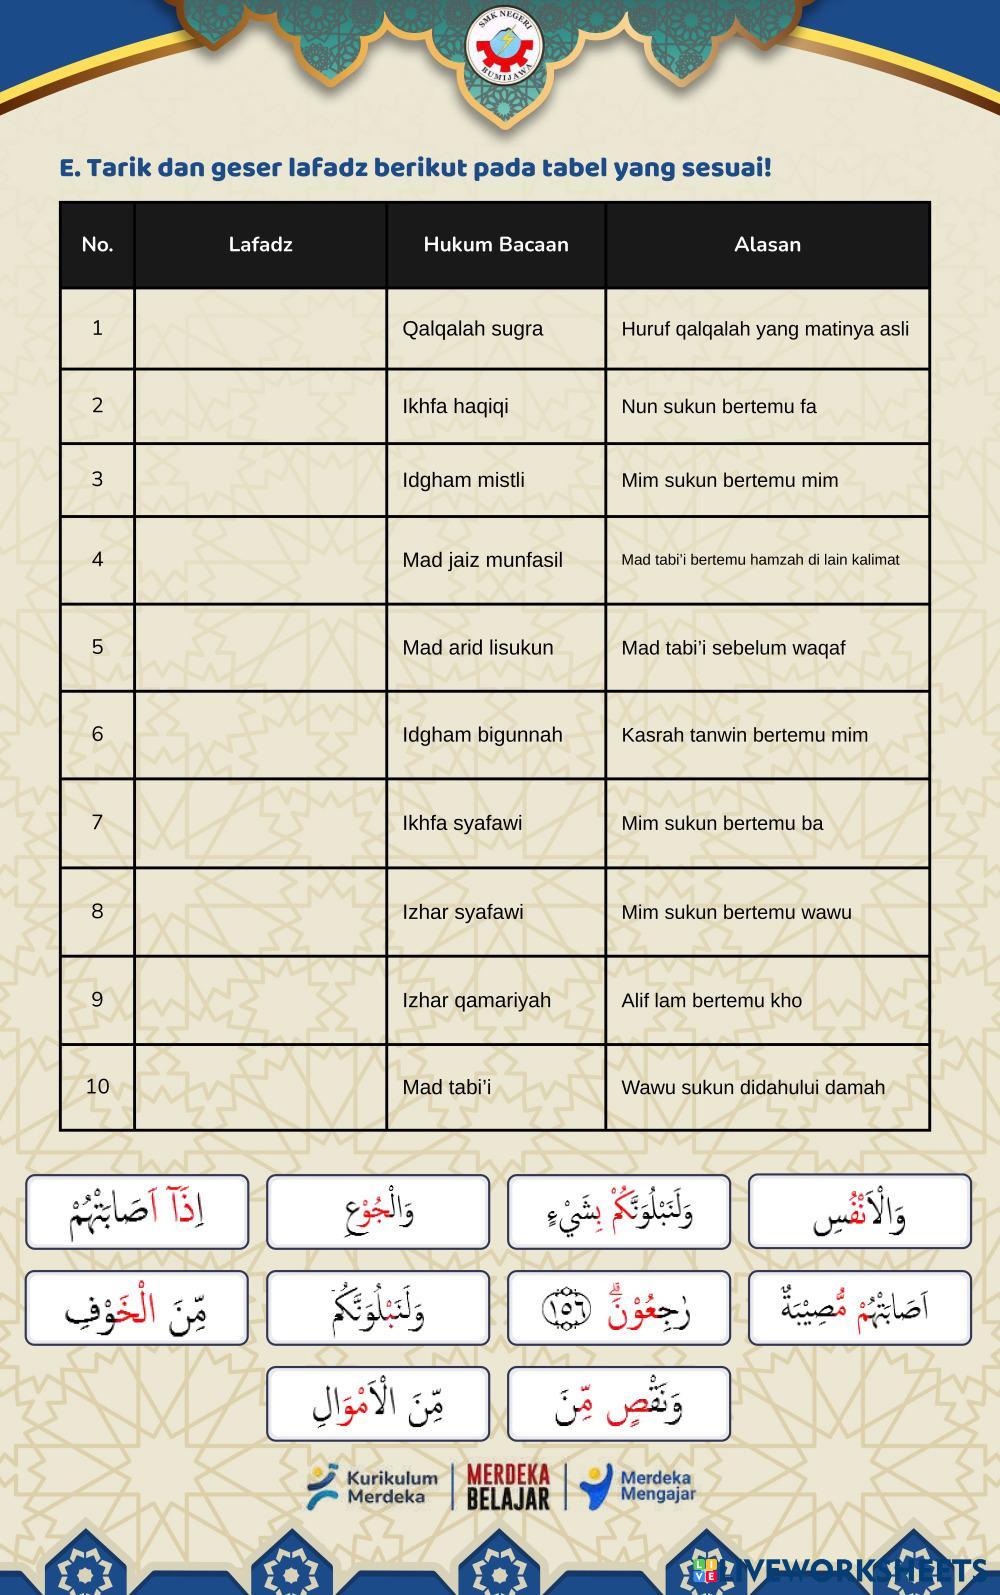 SMK NEGERI
BUMIJAWA
E. Tarik dan geser lafadz berikut pada tabel yang sesuai!
No. Lafadz Hukum Bacaan Alasan
1 Qalqalah sugra Huruf qalqalah yang matinya asli
2 Ikhfa haqiqi Nun sukun bertemu fa
3 Idgham mistli Mim sukun bertemu mim
4 Mad jaiz munfasil Mad tabi’i bertemu hamzah di lain kalimat
5 Mad arid lisukun Mad tabi’i sebelum waqaf
6 Idgham bigunnah Kasrah tanwin bertemu mim
7 Ikhfa syafawi Mim sukun bertemu ba
8 Izhar syafawi Mim sukun bertemu wawu
9 Izhar qamariyah Alif lam bertemu kho
10 Mad tabi’i Wawu sukun didahului damah
اِذَآ اَصَابَتْهُمْ
وَالْجُوْعِ
وَلَنَبْلُوَنَّكُمْ بِشَيْءٍ
وَالْاَنْفُسِ
مِّنَ الْخَوْفِ
وَلَنَبْلُوَنَّكُمْ
رٰجِعُوْنَۗ ١٥٦
اَصَابَتْهُمْ مُّصِيْبَةٌ
مِّنَ الْاَمْوَالِ
وَنَقْصٍ مِّنَ
Kurikulum Merdeka
MERDEKA BELAJAR
Merdeka Mengajar
LIVEWORKSHEETS